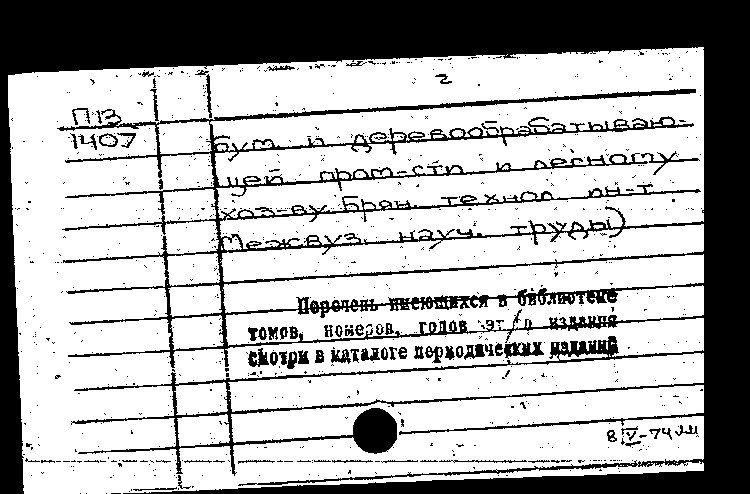 2
П13
1407
бум и деревообрабатываю-
щей пром-сти и лесному
хоз-ву Брян. технол ин-т
Межвуз. науч. труды)
Перечень имеющихся в библиотеке
томов, номеров, годов этого издания
смотри в каталоге периодических изданий
8 V-74